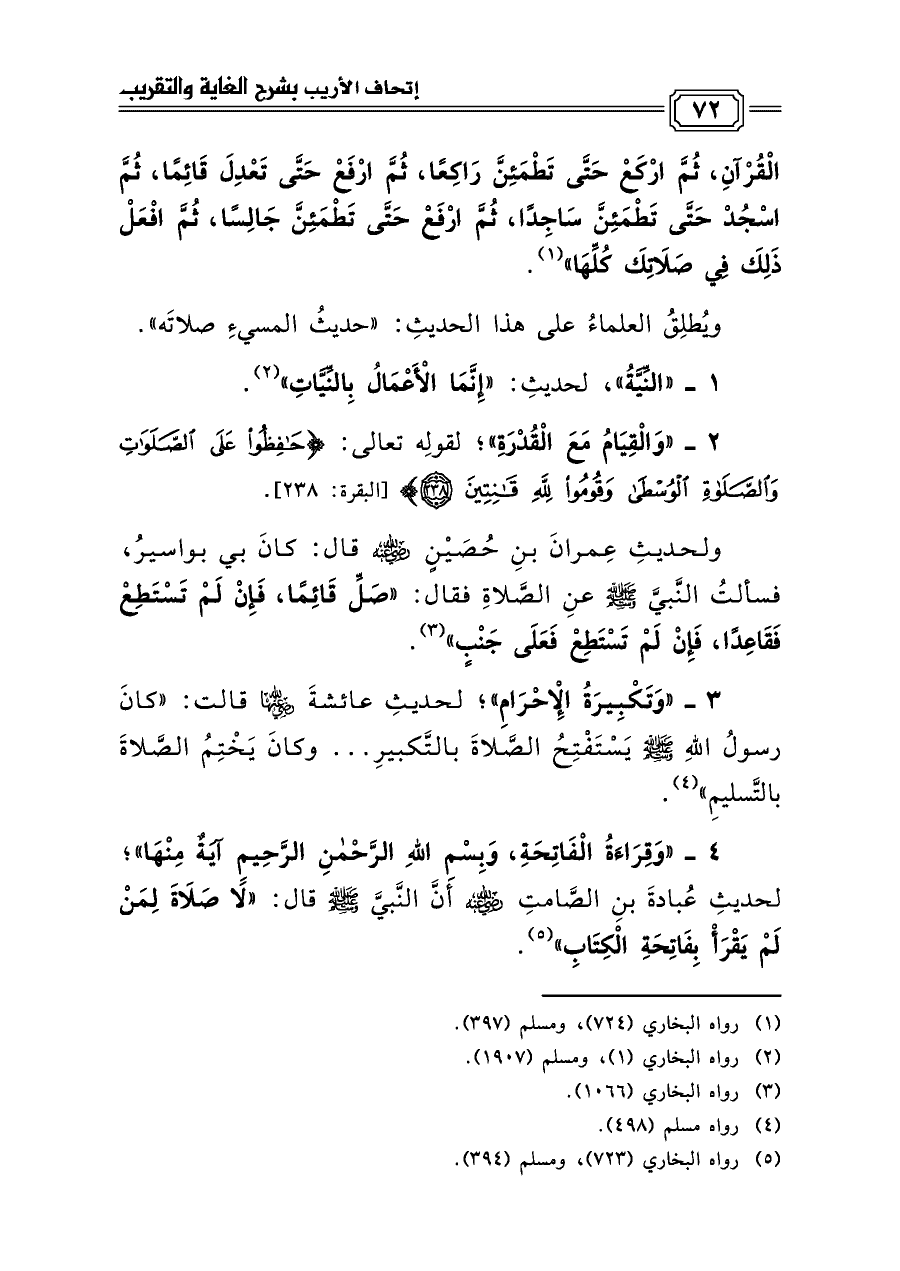 إتحاف الأريب بشرح الغاية والتقريب
٧٢
الْقُرْآنِ، ثُمَّ ارْكَعْ حَتَّى تَطْمَئِنَّ رَاكِعًا، ثُمَّ ارْفَعْ حَتَّى تَعْدِلَ قَائِمًا، ثُمَّ
اسْجُدْ حَتَّى تَطْمَئِنَّ سَاجِدًا، ثُمَّ ارْفَعْ حَتَّى تَطْمَئِنَّ جَالِسًا، ثُمَّ افْعَلْ
ذَلِكَ فِي صَلَاتِكَ كُلِّهَا»(١).
ويُطلِقُ العلماءُ على هذا الحديثِ: «حديثُ المسيءِ صلاتَه».
١ ـ «النِّيَّةُ»، لحديثِ: «إِنَّمَا الْأَعْمَالُ بِالنِّيَّاتِ»(٢).
٢ ـ «وَالْقِيَامُ مَعَ الْقُدْرَةِ»؛ لقولِه تعالى: ﴿حَـٰفِظُوا۟ عَلَى ٱلصَّلَوَٰتِ
وَٱلصَّلَوٰةِ ٱلْوُسْطَىٰ وَقُومُوا۟ لِلَّهِ قَـٰنِتِينَ ٢٣٨﴾ [البقرة: ٢٣٨].
ولحديثِ عِمرانَ بنِ حُصَيْنٍ رضي الله عنه قال: كانَ بي بواسيرُ،
فسألتُ النَّبيَّ ﷺ عنِ الصَّلاةِ فقال: «صَلِّ قَائِمًا، فَإِنْ لَمْ تَسْتَطِعْ
فَقَاعِدًا، فَإِنْ لَمْ تَسْتَطِعْ فَعَلَى جَنْبٍ»(٣).
٣ ـ «وَتَكْبِيرَةُ الْإِحْرَامِ»؛ لحديثِ عائشةَ رضي الله عنها قالت: «كانَ
رسولُ اللهِ ﷺ يَسْتَفْتِحُ الصَّلاةَ بالتَّكبيرِ... وكانَ يَخْتِمُ الصَّلاةَ
بالتَّسليمِ»(٤).
٤ ـ «وَقِرَاءَةُ الْفَاتِحَةِ، وَبِسْمِ اللهِ الرَّحْمٰنِ الرَّحِيمِ آيَةٌ مِنْهَا»؛
لحديثِ عُبادةَ بنِ الصَّامتِ رضي الله عنه أَنَّ النَّبيَّ ﷺ قال: «لَا صَلَاةَ لِمَنْ
لَمْ يَقْرَأْ بِفَاتِحَةِ الْكِتَابِ»(٥).
(١) رواه البخاري (٧٢٤)، ومسلم (٣٩٧).
(٢) رواه البخاري (١)، ومسلم (١٩٠٧).
(٣) رواه البخاري (١٠٦٦).
(٤) رواه مسلم (٤٩٨).
(٥) رواه البخاري (٧٢٣)، ومسلم (٣٩٤).